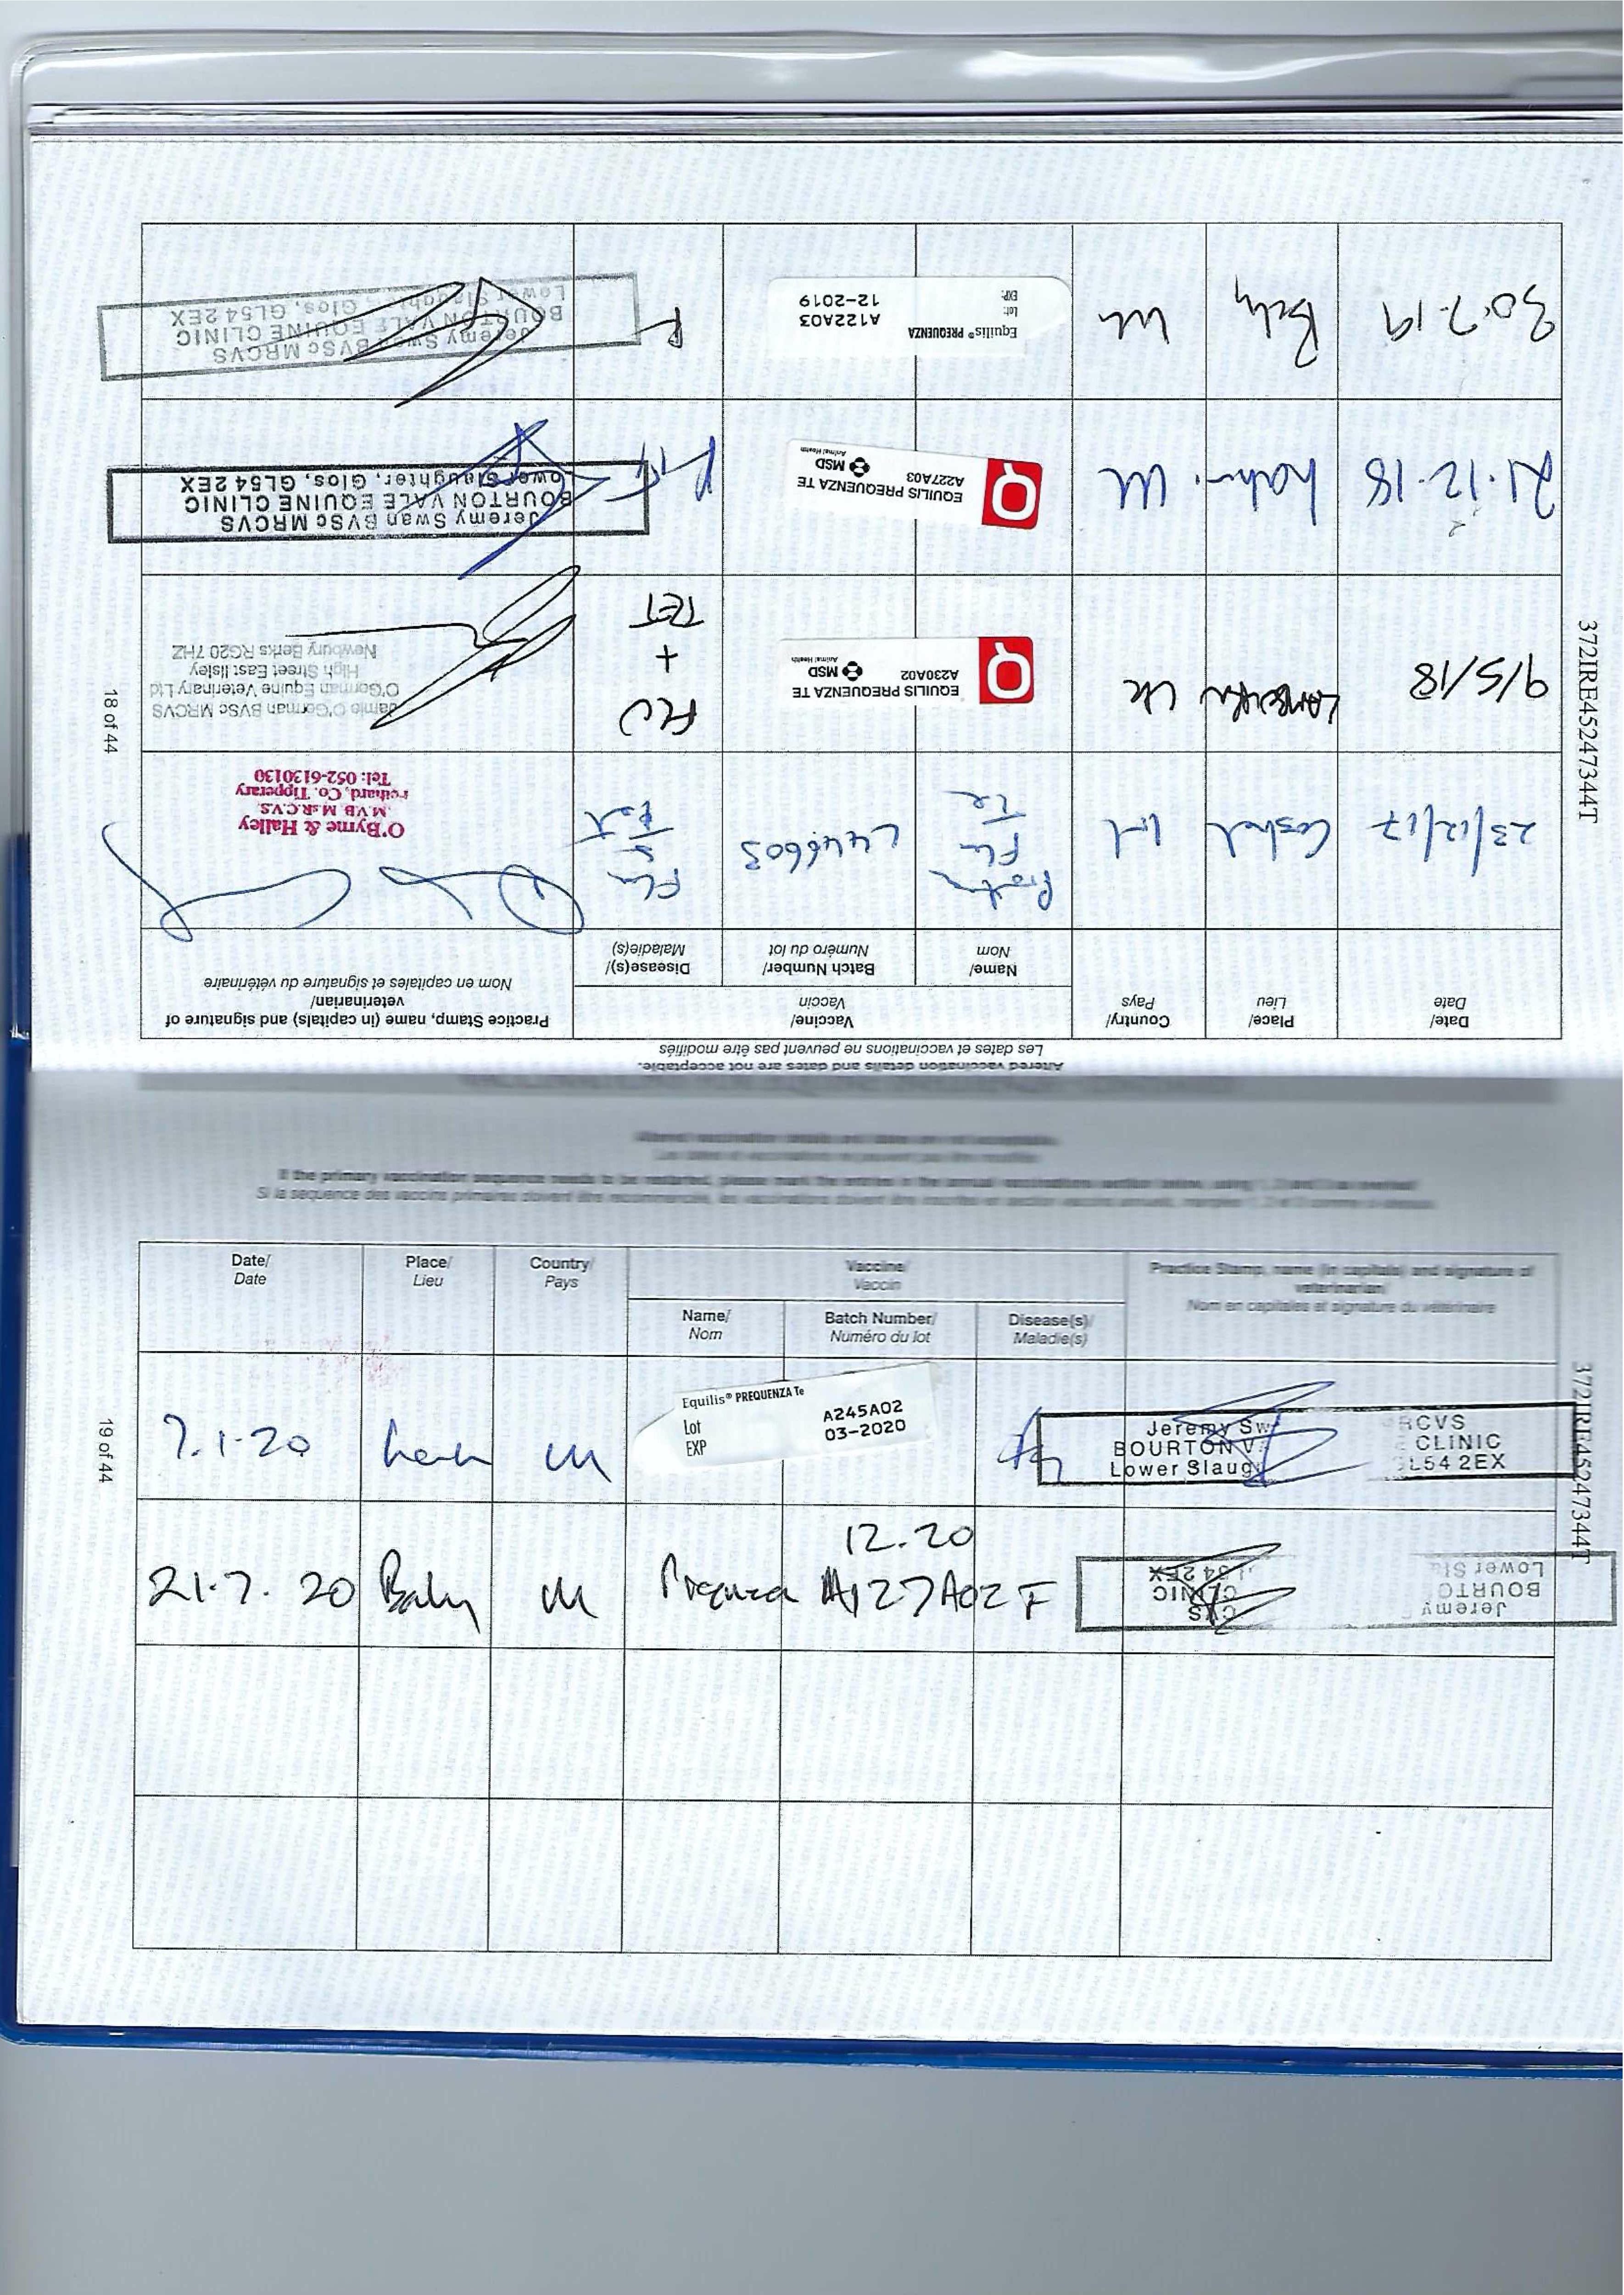 Altered vaccination details and dates are not acceptable.
Les dates et vaccinations ne peuvent pas être modifiés
Date/
Date
Place/
Lieu
Country/
Pays
Vaccine/
Vaccin
Name/
Nom
Batch Number/
Numéro du lot
Disease(s)/
Maladie(s)
Practice Stamp, name (in capitals) and signature of
veterinarian/
Nom en capitales et signature du vétérinaire
23/12/17
Cashel
Irl
Flu
Te
L446603
Flu
Tet
O'Byrne & Halley
M.V.B. M.R.C.V.S.
Fethard, Co. Tipperary
Tel: 052-6130130
9/5/18
Lambourn
UK
EQUILIS PREQUENZA TE
A230A02
MSD
Animal Health
FLU
+
TET
Jamie O'Gorman BVSc MRCVS
O'Gorman Equine Veterinary Ltd
High Street East Ilsley
Newbury Berks RG20 7HZ
21.12.18
UK
EQUILIS PREQUENZA TE
A227A03
MSD
Animal Health
Jeremy Swan BVSc MRCVS
BOURTON VALE EQUINE CLINIC
Lower Slaughter, Glos, GL54 2EX
30.7.19
UK
Equilis® PREQUENZA
Lot: A122A03
EXP: 12-2019
F
Jeremy Swan BVSc MRCVS
BOURTON VALE EQUINE CLINIC
Lower Slaughter, Glos, GL54 2EX
18 of 44
372IRE45247344T
Altered vaccination details and dates are not acceptable.
Les dates et vaccinations ne peuvent pas être modifiés
If the primary vaccination sequence needs to be restarted, please mark the entries in the annual vaccinations section below, using 1, 2 and 3 as overleaf
Date/
Date
Place/
Lieu
Country/
Pays
Vaccine/
Vaccin
Name/
Nom
Batch Number/
Numéro du lot
Disease(s)/
Maladie(s)
Practice Stamp, name (in capitals) and signature of
veterinarian/
Nom en capitales et signature du vétérinaire
7.1.20
UK
Equilis® PREQUENZA Te
Lot A245A02
EXP 03-2020
Jeremy Sw RCVS
BOURTON V CLINIC
Lower Slaug L54 2EX
21.7.20
UK
12.20
A127A02
F
Jeremy CVS
BOURTO CLINIC
Lower Sla L54 2EX
19 of 44
372IRE45247344T